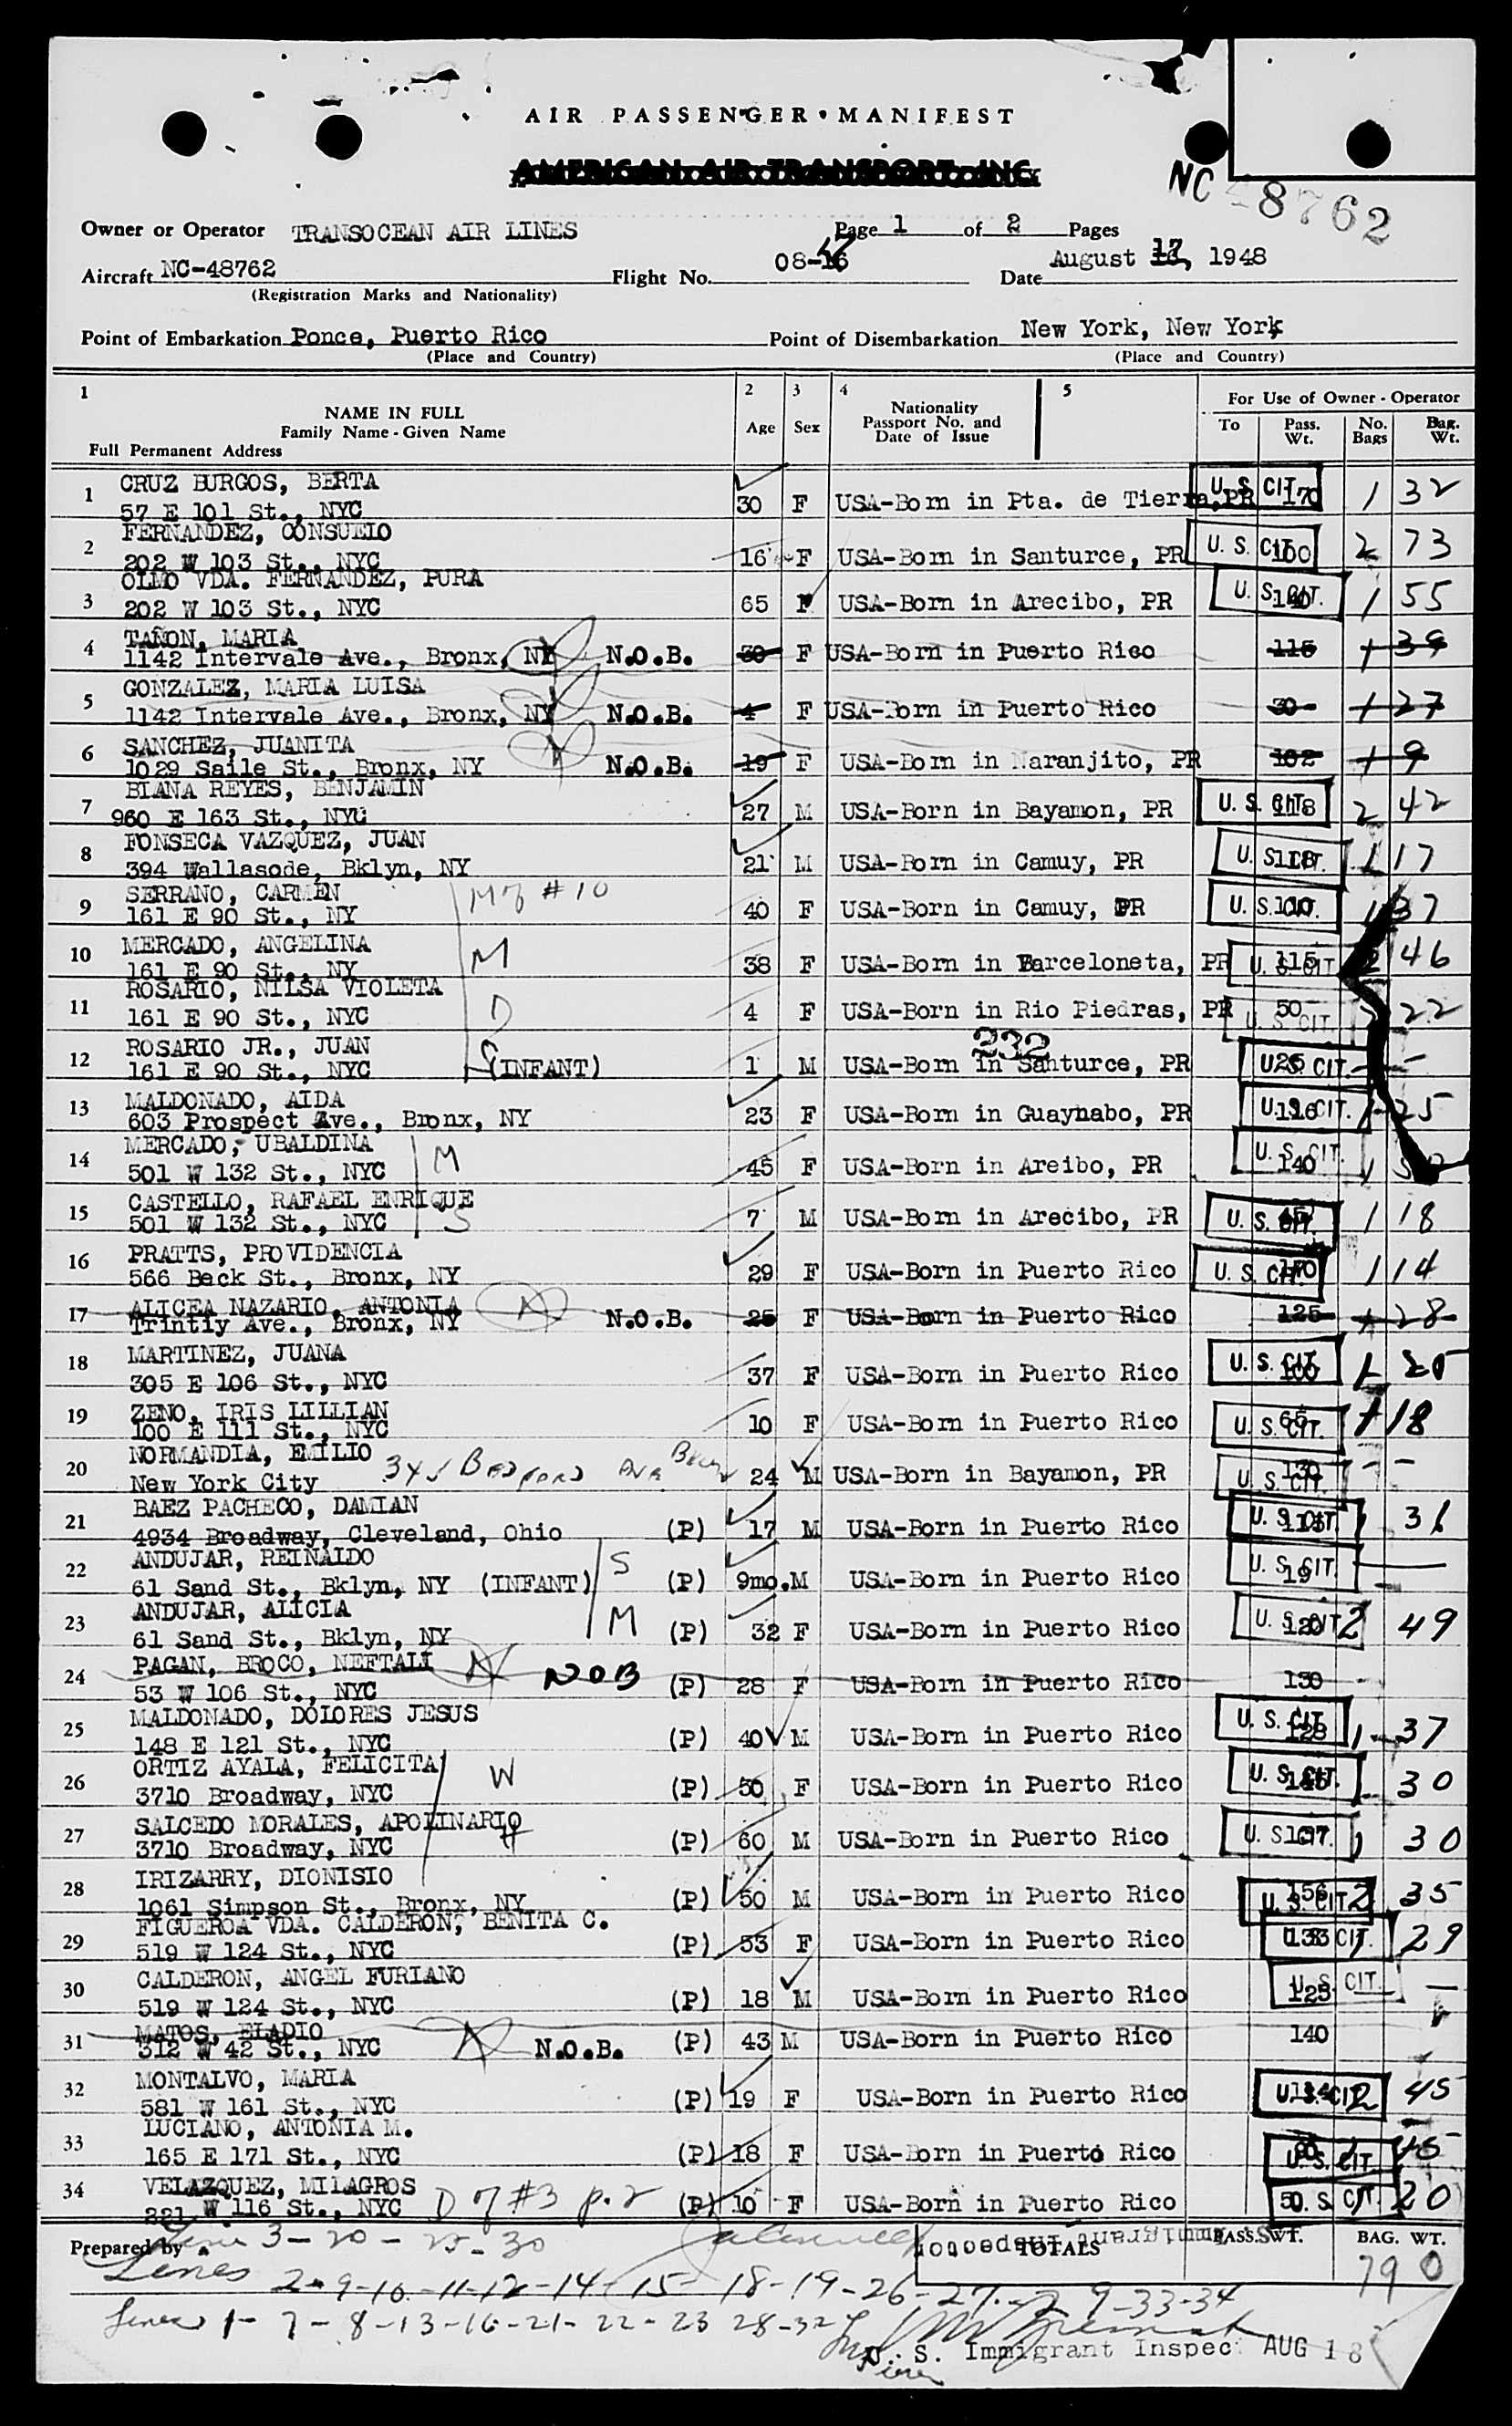 AIR PASSENGER MANIFEST
AMERICAN AIR TRANSPORT, INC.
NC-48762
Owner or Operator TRANSOCEAN AIR LINES Page 1 of 2 Pages
Aircraft NC-48762 Flight No. 08-16 Date August 17, 1948
(Registration Marks and Nationality)
Point of Embarkation Ponce, Puerto Rico Point of Disembarkation New York, New York
(Place and Country) (Place and Country)
1 2 3 4 5 For Use of Owner - Operator
NAME IN FULL Age Sex Nationality Passport No. and Date of Issue To Pass. Wt. No. Bags Bag. Wt.
Family Name - Given Name
Full Permanent Address
CRUZ BURGOS, BERTA
1 57 E 101 St., NYC 30 F USA-Born in Pta. de Tierra, PR U. S. CIT. 170 1 32
FERNANDEZ, CONSUELO
2 202 W 103 St., NYC 16 F USA-Born in Santurce, PR U. S. CIT. 100 2 73
OLMO VDA. FERNANDEZ, PURA
3 202 W 103 St., NYC 65 F USA-Born in Arecibo, PR U. S. CIT. 140 1 55
TAÑON, MARIA
4 1142 Intervale Ave., Bronx, NY N.O.B. 30 F USA-Born in Puerto Rico 115 1 39
GONZALEZ, MARIA LUISA
5 1142 Intervale Ave., Bronx, NY N.O.B. 4 F USA-Born in Puerto Rico 30 1 27
SANCHEZ, JUANITA
6 1029 Saile St., Bronx, NY N.O.B. 19 F USA-Born in Naranjito, PR 102 1 9
BIANA REYES, BENJAMIN
7 960 E 163 St., NYC 27 M USA-Born in Bayamon, PR U. S. CIT. 118 2 42
FONSECA VAZQUEZ, JUAN
8 394 Wallasode, Bklyn, NY 21 M USA-Born in Camuy, PR U. S. CIT. 118 1 17
SERRANO, CARMEN M of #10
9 161 E 90 St., NY 40 F USA-Born in Camuy, PR U. S. CIT. 110 1 37
MERCADO, ANGELINA M
10 161 E 90 St., NY 38 F USA-Born in Barceloneta, PR U. S. CIT. 115 2 46
ROSARIO, NILSA VIOLETA
11 161 E 90 St., NYC D 4 F USA-Born in Rio Piedras, PR U. S. CIT. 50 22
232
ROSARIO JR., JUAN
12 161 E 90 St., NYC S (INFANT) 1 M USA-Born in Santurce, PR U. S. CIT. 25 -
MALDONADO, AIDA
13 603 Prospect Ave., Bronx, NY 23 F USA-Born in Guaynabo, PR U. S. CIT. 116 1 25
MERCADO, UBALDINA M
14 501 W 132 St., NYC 45 F USA-Born in Areibo, PR U. S. CIT. 140 1
CASTELLO, RAFAEL ENRIQUE
15 501 W 132 St., NYC S 7 M USA-Born in Arecibo, PR U. S. CIT. 1 18
PRATTS, PROVIDENCIA
16 566 Beck St., Bronx, NY 29 F USA-Born in Puerto Rico U. S. CIT. 170 1 14
ALICEA NAZARIO, ANTONIA
17 Trintiy Ave., Bronx, NY N.O.B. 25 F USA-Born in Puerto Rico 125 1 28
MARTINEZ, JUANA
18 305 E 106 St., NYC 37 F USA-Born in Puerto Rico U. S. CIT. 100 1 20
ZENO, IRIS LILLIAN
19 100 E 111 St., NYC 10 F USA-Born in Puerto Rico U. S. CIT. 65 1 18
NORMANDIA, EMILIO
20 New York City Bedford Ave 24 M USA-Born in Bayamon, PR U. S. CIT. 130 - -
BAEZ PACHECO, DAMIAN
21 4934 Broadway, Cleveland, Ohio (P) 17 M USA-Born in Puerto Rico U. S. CIT. 1 31
ANDUJAR, REINALDO S
22 61 Sand St., Bklyn, NY (INFANT) (P) 9mo. M USA-Born in Puerto Rico U. S. CIT. 19
ANDUJAR, ALICIA M
23 61 Sand St., Bklyn, NY (P) 32 F USA-Born in Puerto Rico U. S. CIT. 120 2 49
PAGAN, BROCO, NEFTALI NOB
24 53 W 106 St., NYC (P) 28 F USA-Born in Puerto Rico 130
MALDONADO, DOLORES JESUS
25 148 E 121 St., NYC (P) 40 M USA-Born in Puerto Rico U. S. CIT. 128 1 37
ORTIZ AYALA, FELICITA W
26 3710 Broadway, NYC (P) 50 F USA-Born in Puerto Rico U. S. CIT. 30
SALCEDO MORALES, APOLINARIO H
27 3710 Broadway, NYC (P) 60 M USA-Born in Puerto Rico U. S. 1 30
IRIZARRY, DIONISIO
28 1061 Simpson St., Bronx, NY (P) 50 M USA-Born in Puerto Rico U. S. CIT. 156 2 35
FIGUEROA VDA. CALDERON, BENITA C.
29 519 W 124 St., NYC (P) 53 F USA-Born in Puerto Rico CIT. 133 1 29
CALDERON, ANGEL FURIANO
30 519 W 124 St., NYC (P) 18 M USA-Born in Puerto Rico U. S. CIT. 125 -
MATOS, ELADIO
31 312 W 42 St., NYC N.O.B. (P) 43 M USA-Born in Puerto Rico 140
MONTALVO, MARIA
32 581 W 161 St., NYC (P) 19 F USA-Born in Puerto Rico U. S. CIT. 2 45
LUCIANO, ANTONIA M.
33 165 E 171 St., NYC (P) 18 F USA-Born in Puerto Rico U. S. CIT. 90 1 45
VELAZQUEZ, MILAGROS
34 221 W 116 St., NYC D of #3 p. 2 (P) 10 F USA-Born in Puerto Rico S. CIT. 50 1 20
Prepared by Line 3-20-25-30 Immigrant Inspector TOTALS PASS. WT. BAG. WT.
790
Lines 2-9-10-11-12-14-15-18-19-26-27-29-33-34
Lines 1-7-8-13-16-21-22-23 28-32
U. S. Immigrant Inspec AUG 18